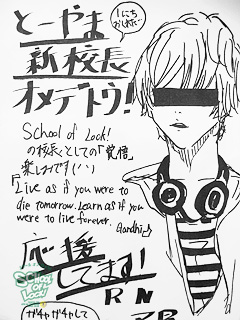 とーやま
新校長
オメデトウ!
1にち
おしれた
School of Lock!
の校長としての「覚悟」
楽しみです(^^)
「Live as if you were to
die tomorrow. Learn as if you
were to live forever.
Gandhi」
応援
してます!
RN
SCHOOL
OF
LOCK!